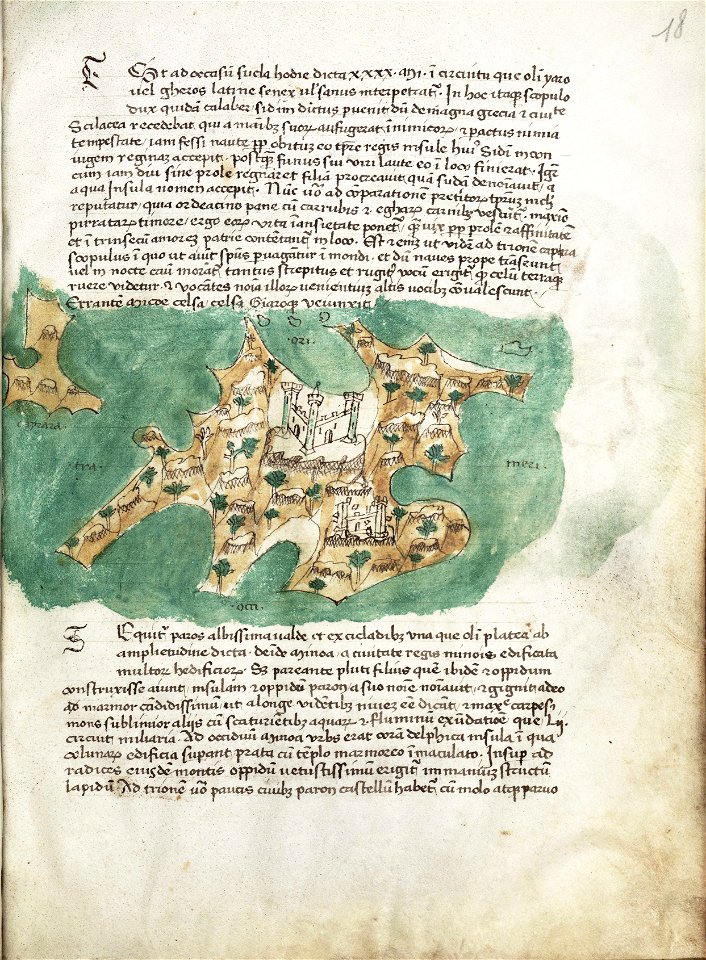 18
Est ad occasũ sucla hodie dicta xxxx. mi. ĩ circuitu que oli yaro
vel gheros latine senex vl' sanus interpotrat᷑. In hoc itaq scopulo
dux quidã calaber sid im dictus puenit dũ de magna grecia & ciuite
Scilacea recedebat, qui a manibꝫ suoꝝ aufugerat inimicoꝝ & pactus nimia
tempestate, iam fessi naute ꝓp obitũ eo tp̃re regis insule hui᷑ Sidim con
iugem reginaꝫ accepit. postꝗꝫ funus sui viri laute eo ĩ loco finierat. Igr̃
cum iam diu sine prole regnaret filiã procreauit quã sudam denoĩauit, a
qua Insula nomen accepit. Nũc uõ ad cõparationem pretitoꝝ tpꝝ nich
reputatur, quia ordeacino pane cũ carrubis & egharꝫ carnibꝫ vescunt᷑.
pirrataꝝ timore, ergo eoꝝ vitã ĩ ansietate ponẽt᷑, prole & affinitatẽ
et ĩ trinsecũ amoreꝫ patrie contẽtant᷑ in loco. Est & eniꝫ ut vidim᷑ ad trionẽ
scopulus ĩ quo ut aiũt spũs ꝑuagatur ĩ mondi. et dũ naues prope trãseunt
uel in nocte cau morat᷑, tantus strepitus et rugit᷑ vocũ erigit᷑ celũ terraqꝫ
ruere videtur. & vocãtes noĩa illoꝝ uenientiuꝫ altis vocibꝫ cõualescunt.
Errantẽ celsa, celsa Giaroqꝫ
ori.
tra.
meri.
occi.
Sequit᷑ paros albissima ualde et ex cicladibꝫ una que oli᷑ platea ab
amplietudine dicta. deĩde Minoa, a ciuitate regis minois edificata
multoꝝ hedificioꝝ. Sꝫ pareante pluti filius quẽ ibidẽ & oppidum
construxisse aiunt, insulam & oppidũ paron a suo noĩe noĩauit, & gignit adeo
marmor cãdidissimũ, ut a longe vidẽtibꝫ niueꝫ eẽ dicãt᷑, carpesi
mons sublimior aliis cũ scaturiẽtibꝫ aquaꝝ & fluminũ exũdatiõe que Lij
circuit miliaria. Ad occidiũ minoa vrbs erat corã delphica insula ĩ qua
colũnaꝝ edificia supant, prata cũ tẽplo marmoreo ĩ maculato. Insup ad
radices eiusdẽ montis oppidũ uetustissimũ erigit᷑ immaniuꝫ structũ
lapidũ. Ad trionẽ uõ paucis ciuibꝫ paron castellũ habet᷑ cũ molo paruo